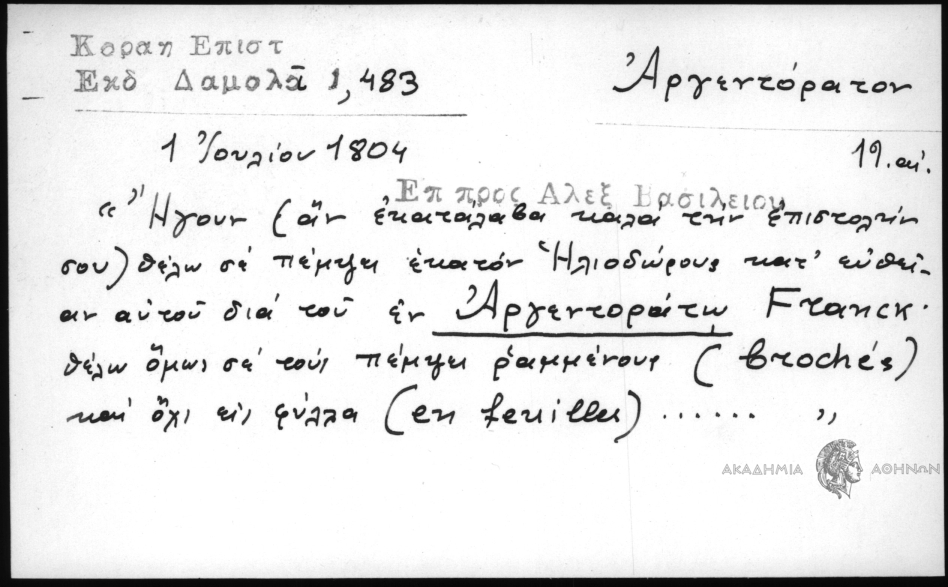 Κοραη Επιστ
Εκδ Δαμολᾶ 1,483
Ἀργεντόρατον
1 Ἰουλίου 1804
19. αἰ.
Επ προς Αλεξ Βασιλειου
“Ἤγουν (ἂν ἐκατάλαβα καλά τήν ἐπιστολήν
σου) θέλω σέ πέμψει ἑκατόν Ἡλιοδώρους κατ’ εὐθεῖ-
αν αὐτοῦ διά τοῦ ἐν Ἀργεντοράτῳ Franck·
θέλω ὅμως σέ τούς πέμψει ῥαμμένους (brochés)
καί ὄχι εἰς φύλλα (en feuilles) ...... ”
ΑΚΑΔΗΜΙΑ ΑΘΗΝΩΝ